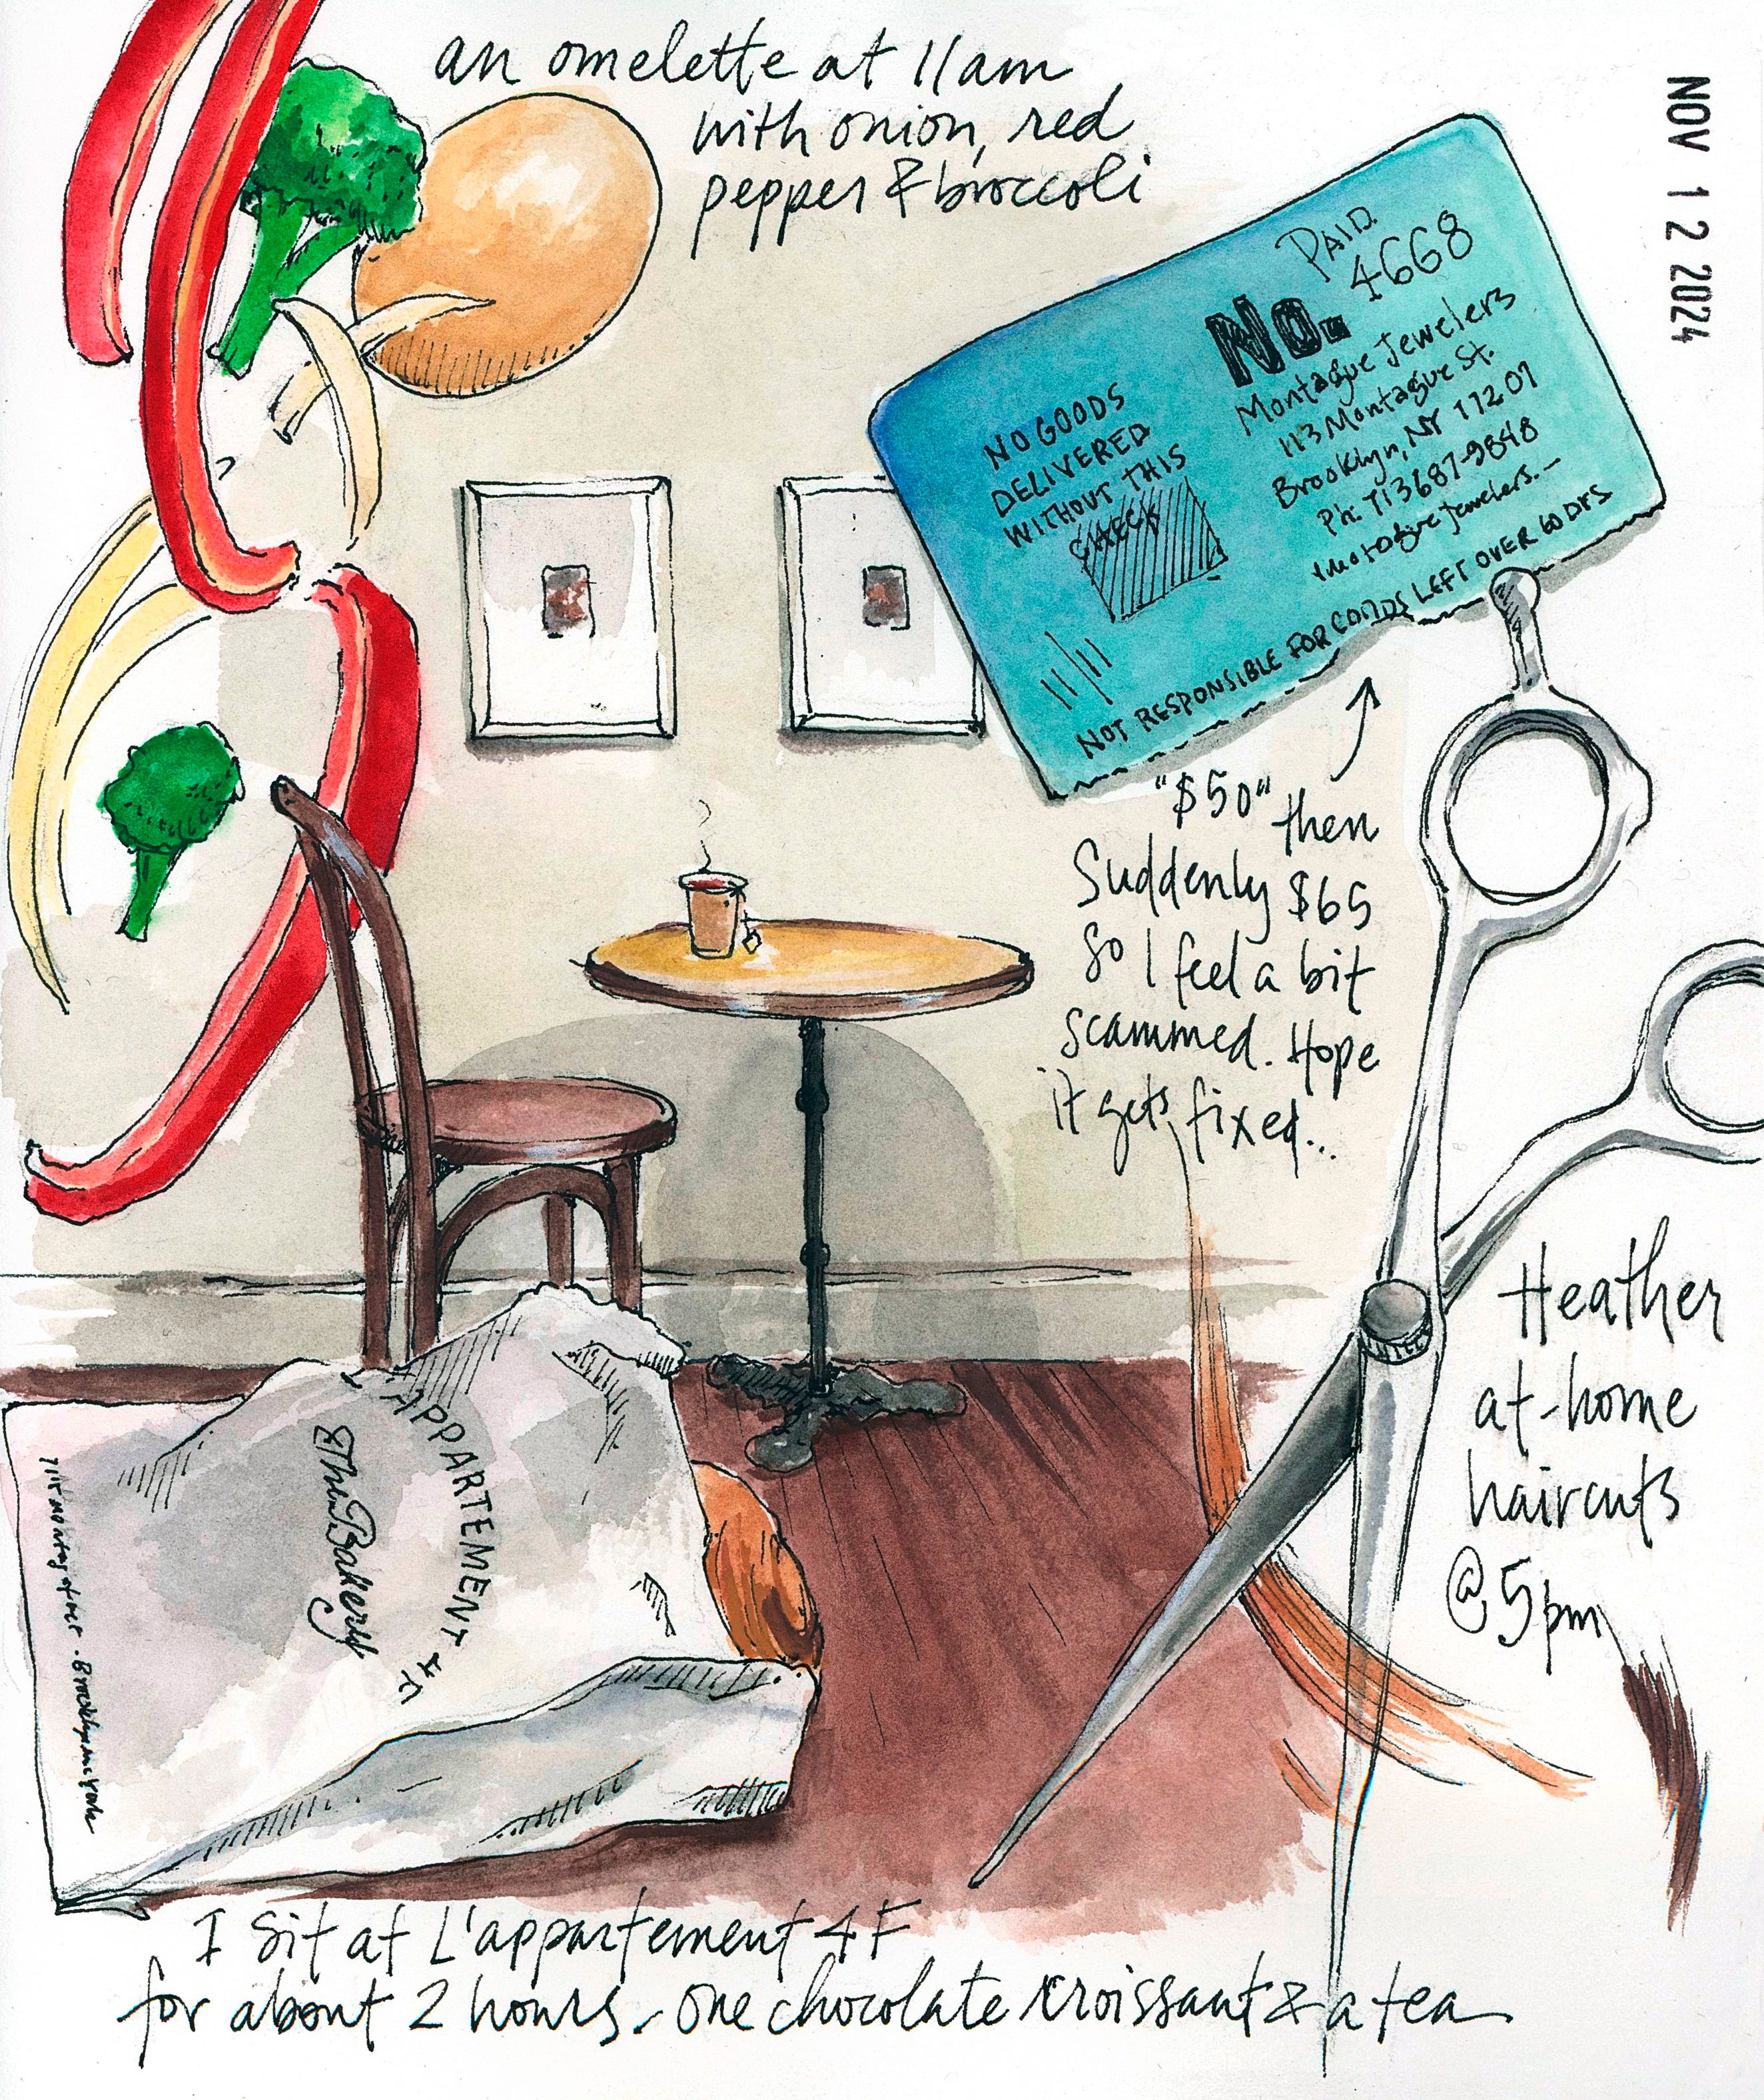 an omelette at 11am
with onion, red
pepper & broccoli
NOV 12 2024
PAID.
4668
No.
Montague Jewelers
113 Montague St.
Brooklyn, NY 11201
Ph: 713687-9848
NO GOODS
DELIVERED
WITHOUT THIS
CHECK
NOT RESPONSIBLE FOR GOODS LEFT OVER 60 DAYS
"$50" then
Suddenly $65
so I feel a bit
scammed. Hope
it gets fixed...
Heather
at-home
haircuts
@ 5pm
L'APPARTEMENT 4F
The Bakery
I sit at L'appartement 4F
for about 2 hours. one chocolate croissant & a tea